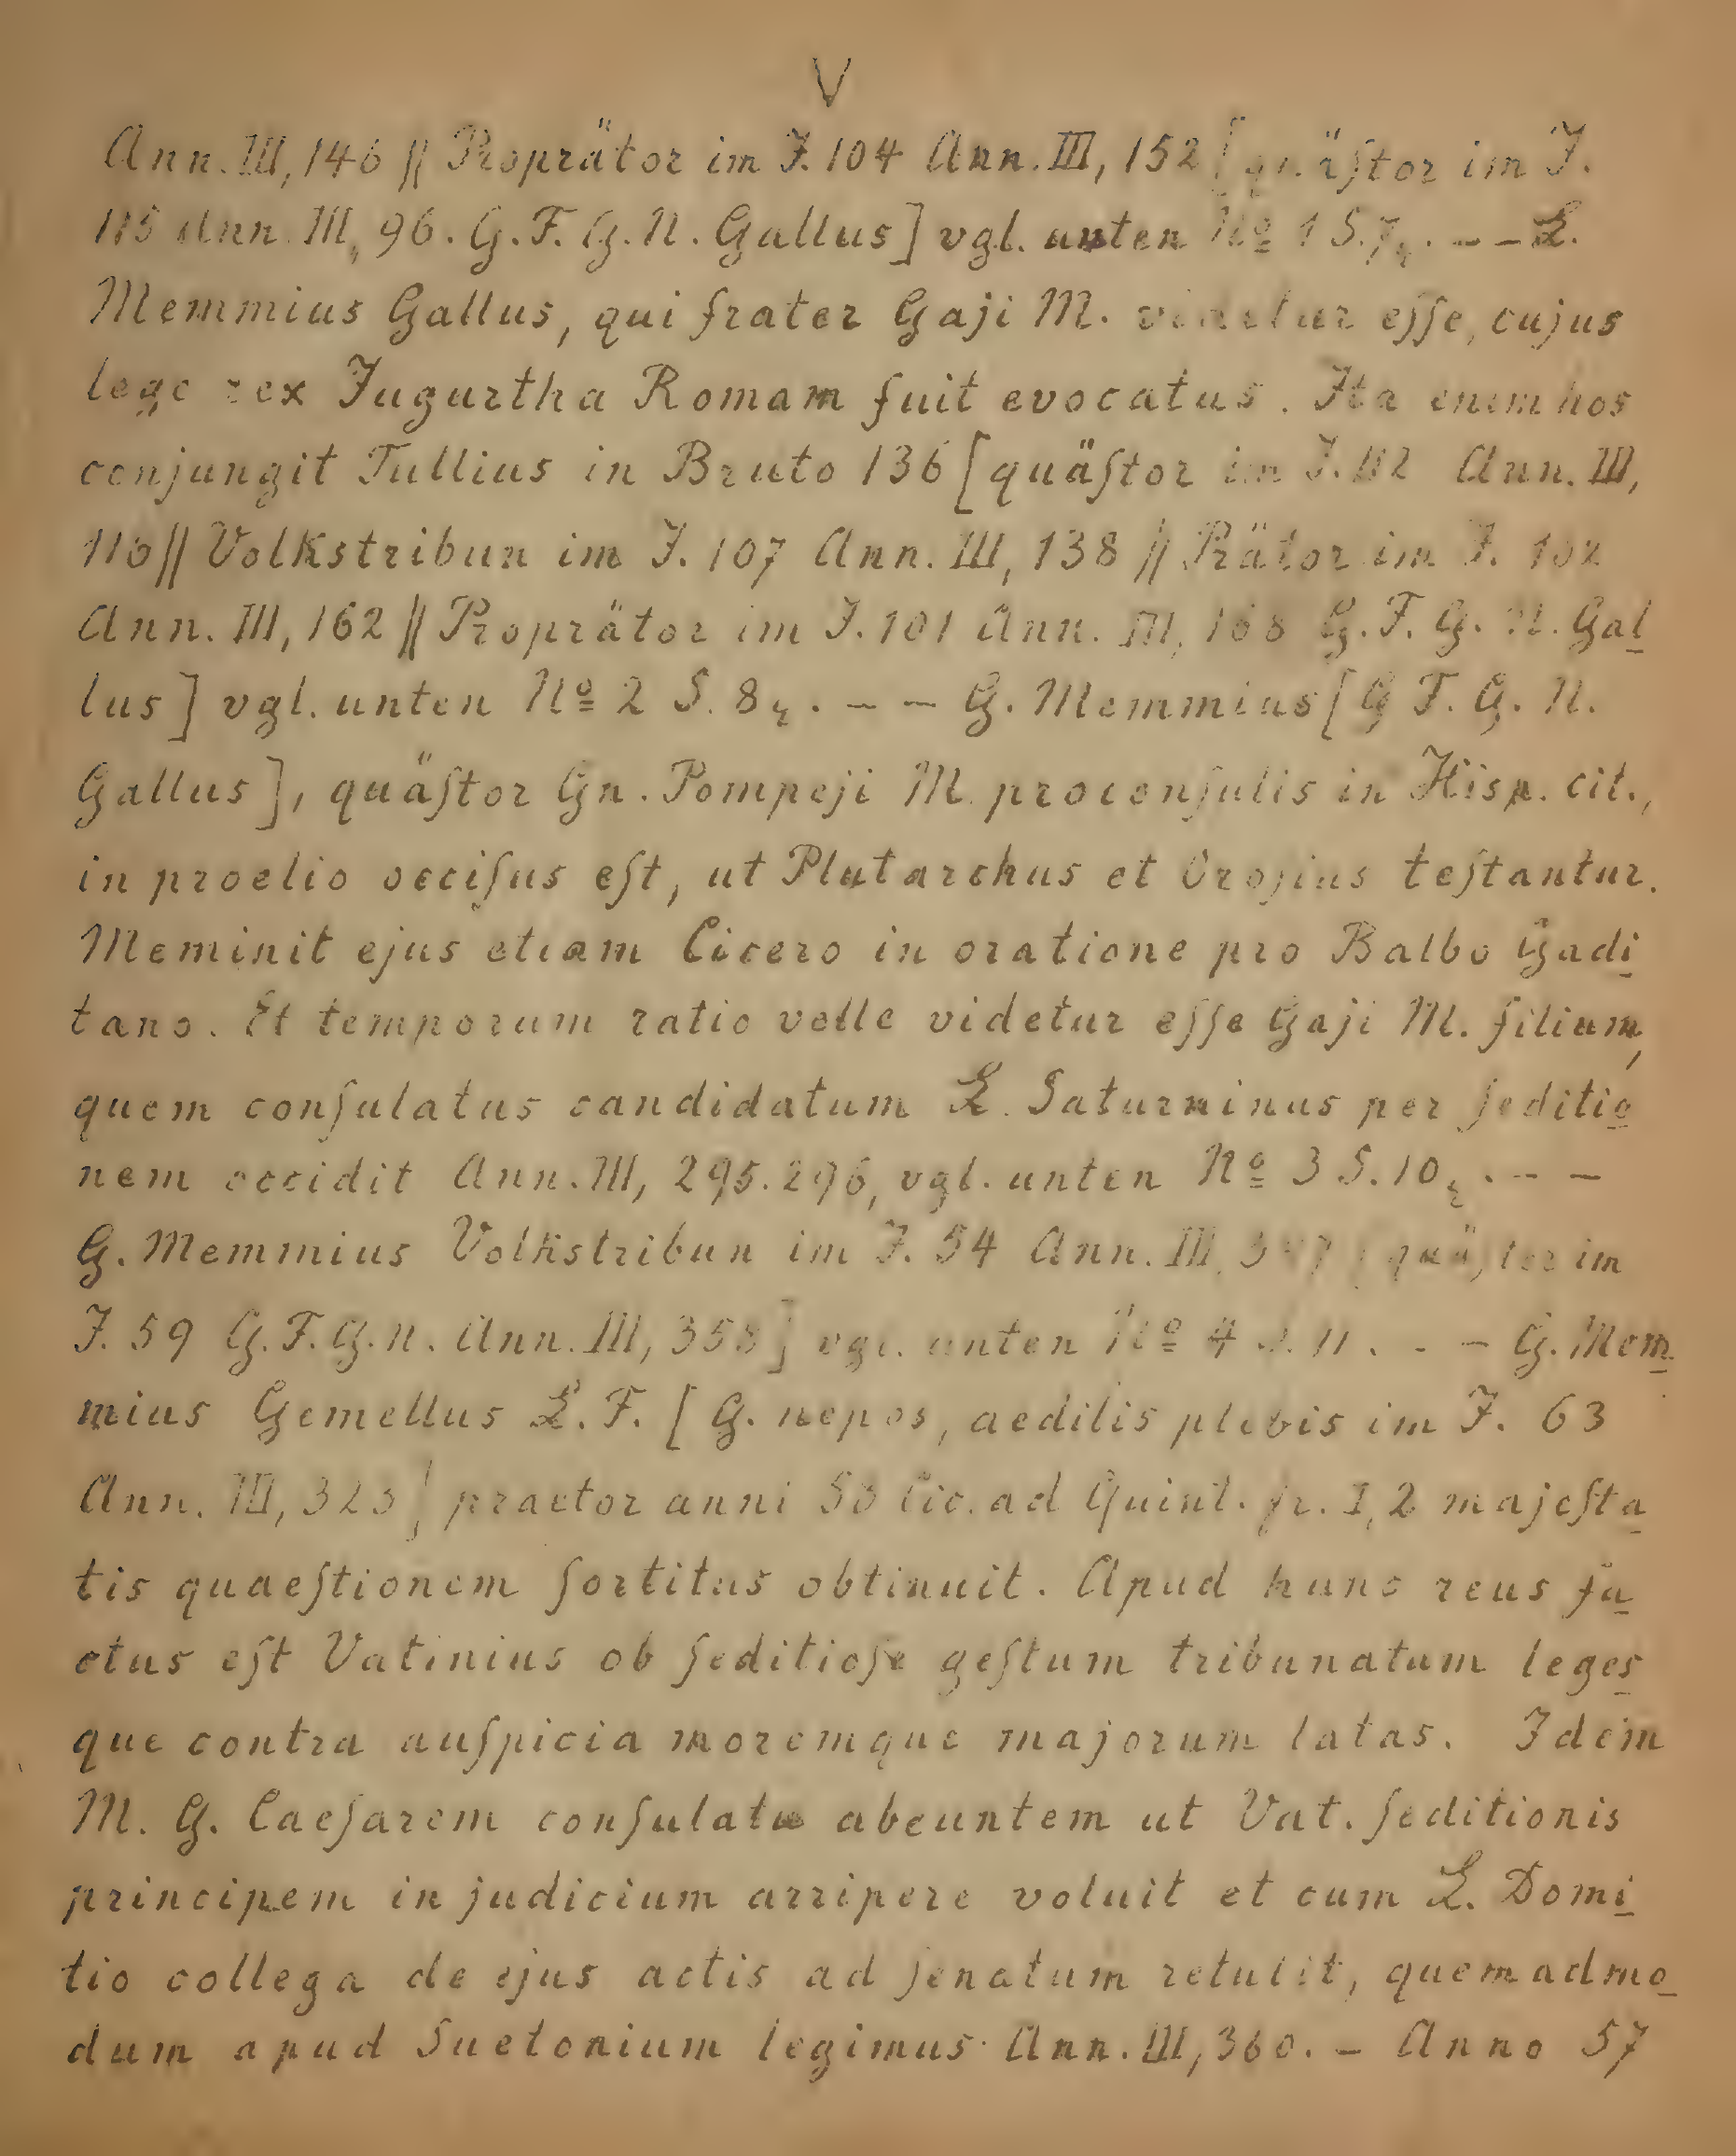 V
Ann. III, 146 || Proprätor im J. 104 Ann. III, 152 [quäſtor im J.
115 Ann. III, 96. G. F. G. N. Gallus] vgl. unten Nº 1 S. 7. – – L.
Memmius Gallus, qui frater Gaji M. videtur eſſe, cujus
lege rex Jugurtha Romam fuit evocatus. Ita enim hos
conjungit Tullius in Bruto 136 [quäſtor im J. 112 Ann. III,
110 || Volkstribun im J. 107 Ann. III, 138 || Prätor im J. 102
Ann. III, 162 || Proprätor im J. 101 Ann. III, 168 G. F. G. N. Gal
lus] vgl. unten Nº 2 S. 8. – – G. Memmius [G F. G. N.
Gallus], quäſtor Gn. Pompeji M. proconſulis in Hisp. cit.,
in proelio occiſus eſt, ut Plutarchus et Oroſius teſtantur.
Meminit ejus etiam Cicero in oratione pro Balbo Gadi
tano. Et temporum ratio velle videtur eſſe Gaji M. filium,
quem conſulatus candidatum L. Saturninus per ſeditio
nem occidit Ann. III, 295. 296, vgl. unten Nº 3 S. 10. – –
G. Memmius Volkstribun im J. 54 Ann. III, [quäſtor im
J. 59 G. F. G. N. Ann. III, 358] vgl. unten Nº 4 S. 11. – – G. Mem
mius Gemellus L. F. [G. nepos, aedilis plebis im J. 63
Ann. III, 323] praetor anni 58 Cic. ad Quint. fr. I, 2 majeſta
tis quaeſtionem ſortitus obtinuit. Apud hunc reus fa
ctus eſt Vatinius ob ſeditioſe geſtum tribunatum leges
que contra auſpicia moremque majorum latas. Idem
M. G. Caeſarem conſulatu abeuntem ut Vat. ſeditionis
principem in judicium arripere voluit et cum L. Domi
tio collega de ejus actis ad ſenatum retulit, quemadmo
dum apud Suetonium legimus. Ann. III, 360. – Anno 57